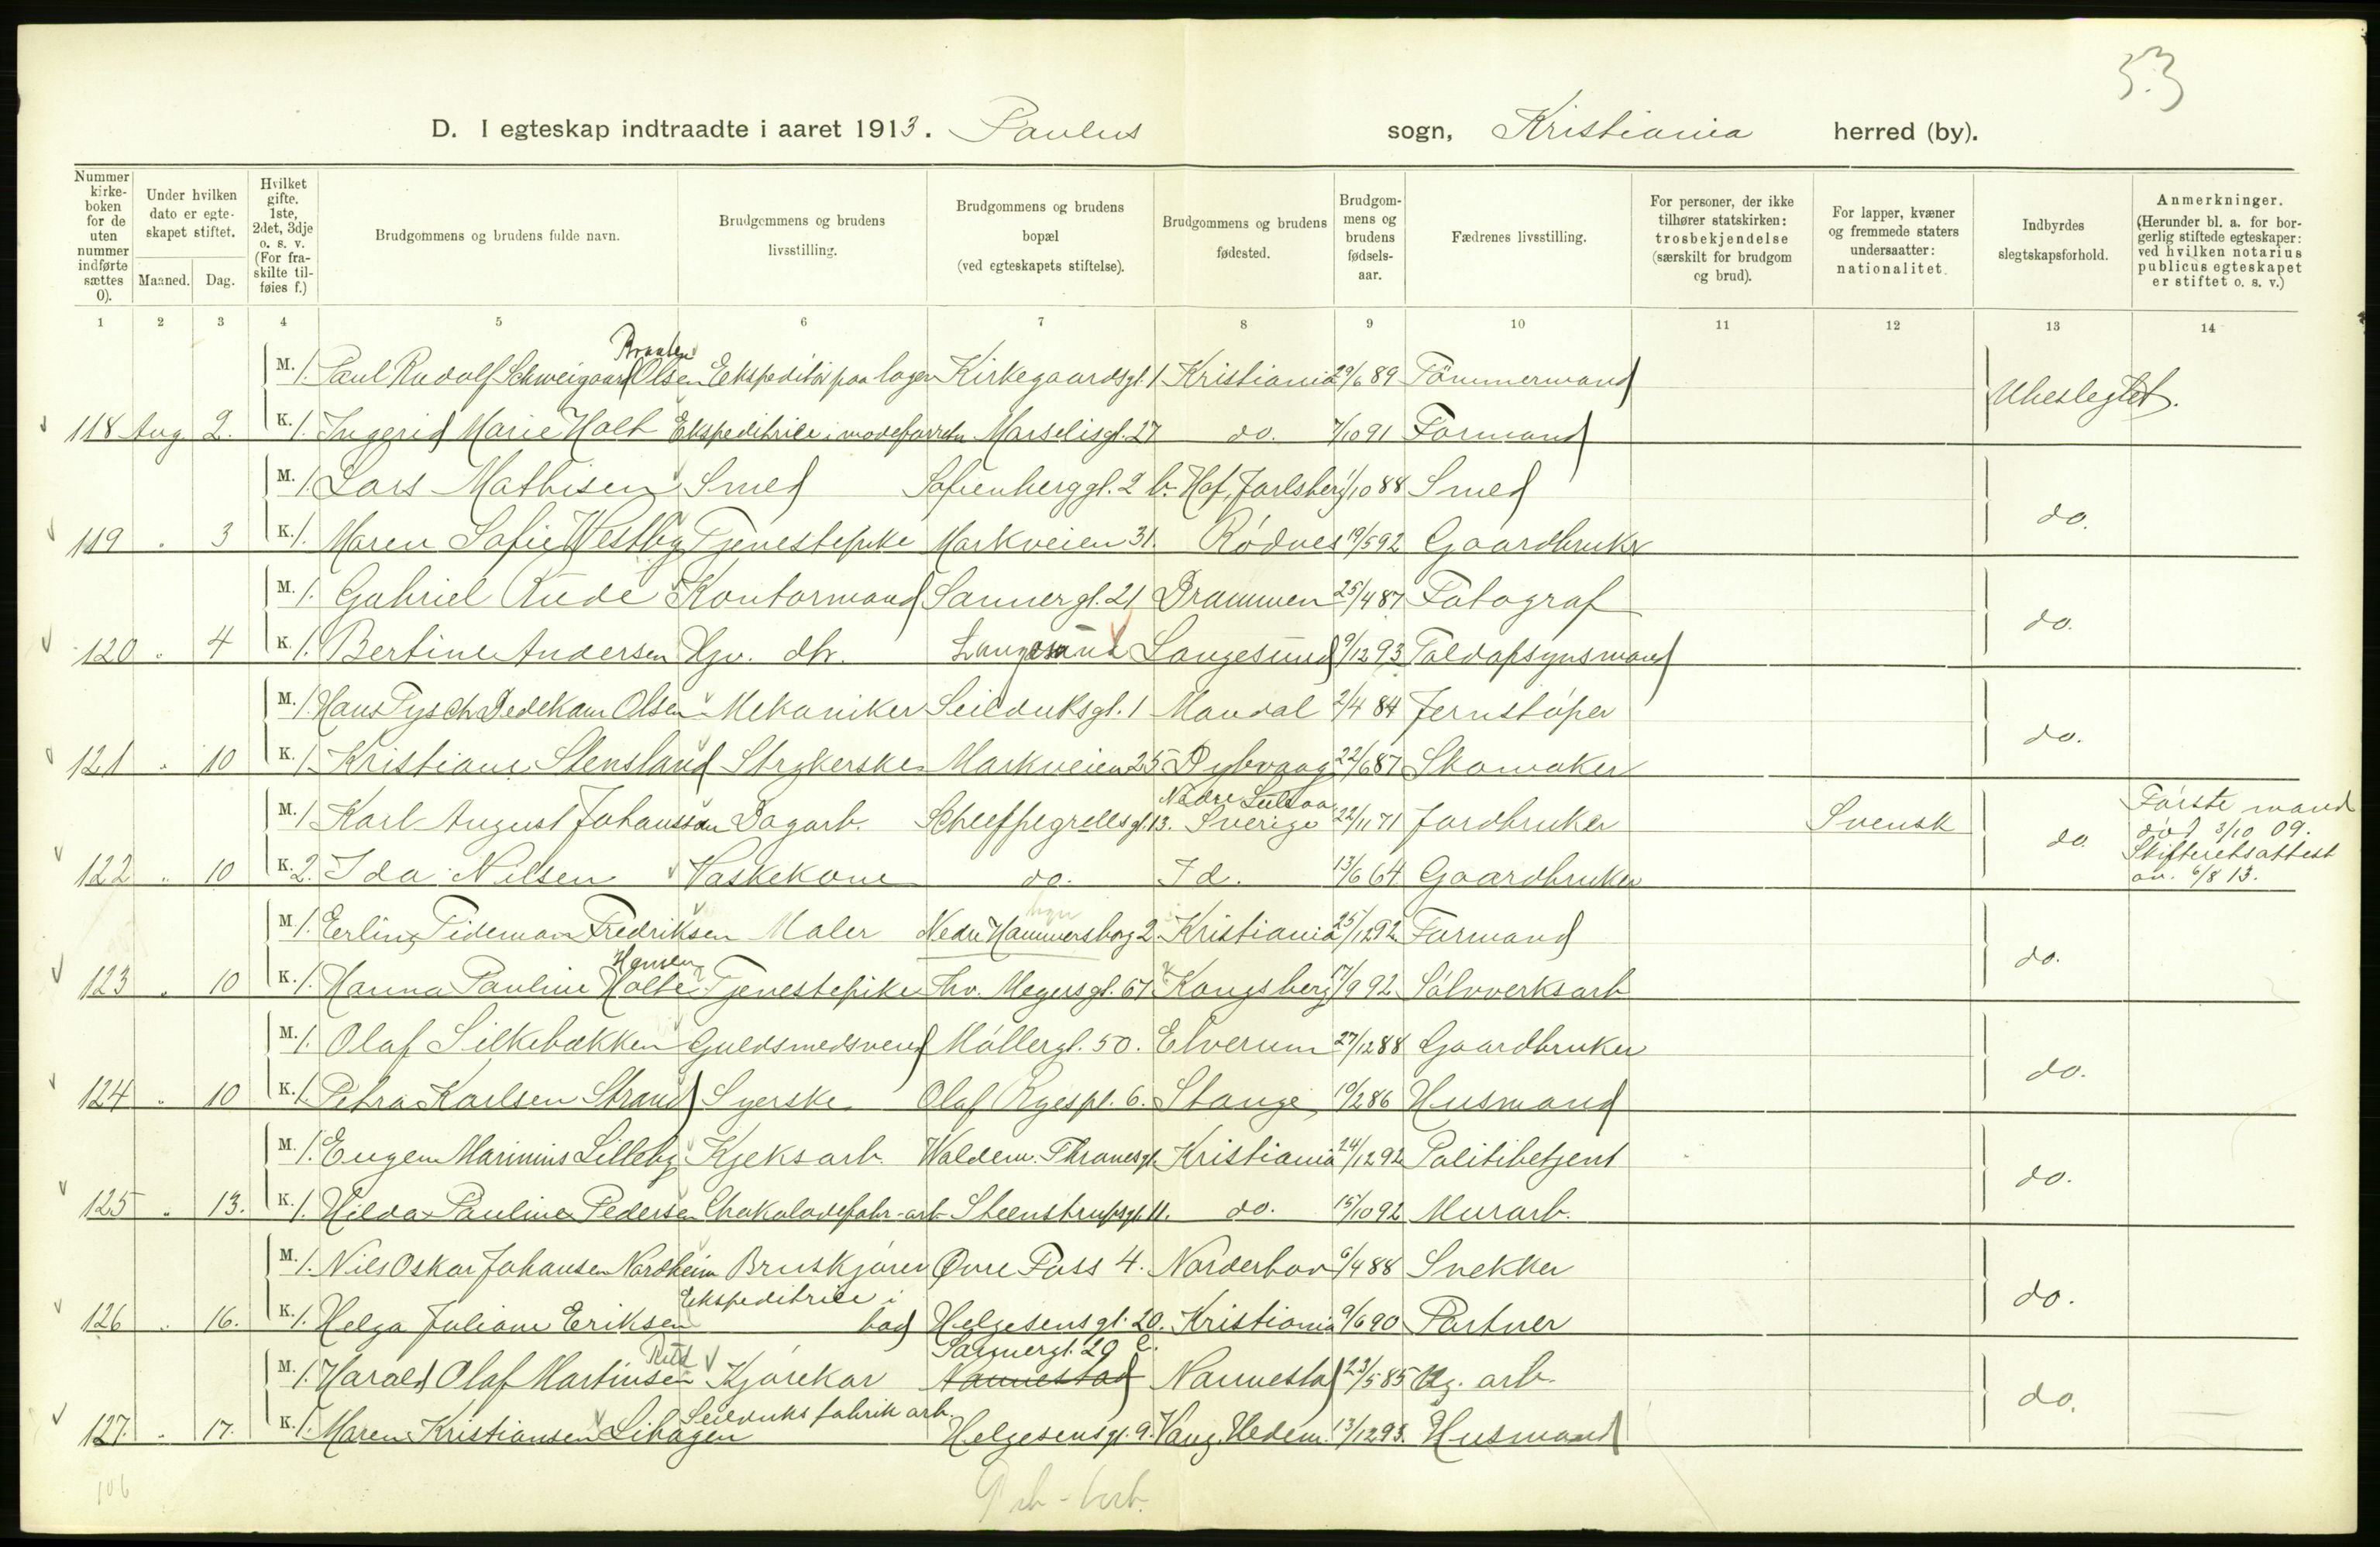 53
D. I egteskap indtraadte i aaret 1913. Paulus sogn, Kristiania herred (by).
Nummer i kirkeboken for de uten nummer indførte sættes 0). Under hvilken dato er egteskapet stiftet. Maaned. Dag. Hvilket gifte. 1ste, 2det, 3dje o. s. v. (For fraskilte tilføies f.) Brudgommens og brudens fulde navn. Brudgommens og brudens livsstilling. Brudgommens og brudens bopæl (ved egteskapets stiftelse). Brudgommens og brudens fødested. Brudgommens og brudens fødselsaar. Fædrenes livsstilling. For personer, der ikke tilhører statskirken: trosbekjendelse (særskilt for brudgom og brud). For lapper, kvæner og fremmede staters undersaatter: nationalitet. Indbyrdes slegtskapsforhold. Anmerkninger. (Herunder bl. a. for borgerlig stiftede egteskaper: ved hvilken notarius publicus egteskapet er stiftet o. s. v.)
1 2 3 4 5 6 7 8 9 10 11 12 13 14
Braaten
M. 1. Paul Rudolf Schweigaard Olsen Ekspeditør paa lager Kirkegaardsgt. 1 Kristiania 29/6 89 Tömmermand Ubeslegtet.
118 Aug. 2. K. 1. Ingerid Marie Holt Ekspeditrice i modeforretn. Marselisgt. 27 do. 7/10 91 Formand
M. 1. Lars Mathisen Smed Sofienberggt. 2 b. Hof, Jarlsberg 1/10 88 Smed do.
119 " 3 K. 1. Maren Sofie Westby Tjenestepike Markveien 31. Rødnes 19/5 92 Gaardbruker
M. 1. Gabriel Rude Kontormand Sannergt. 21 Drammen 25/4 87 Fotograf do.
120 " 4 K. 1. Bertine Andersen Hjv. dtr. Langesund Langesund 9/12 93 Toldopsynsmand
M. 1. Hans Tysch Dedekam Olsen Mekaniker Seilduksgt. 1 Mandal 2/4 84 Jernstøper do.
121 " 10 K. 1. Kristiane Stensland Strykerske Markveien 25 Dybvaag 22/6 87 Skomaker
Nedre
M. 1. Karl August Johansson Dagarb. Schleppegrellsgt. 13. Sverige 22/11 71 Jordbruker Svensk do. Første mand død 3/10 09. Skifteretsattest av 6/8 13.
122 " 10 K. 2. Ida Nilsen Vaskekone do. Id. 13/6 64 Gaardbruker
M. 1. Erling Tideman Fredriksen Maler Nedre Hammersborg 2 Kristiania 25/12 92 Formand do.
Hansen
123 " 10 K. 1. Hanna Pauline Holte Tjenestepike Thv. Meyersgt. 67 Kongsberg 17/9 92 Sölvverksarb
M. 1. Olaf Silkebækken Guldsmedsvend Møllergt. 50. Elverum 27/12 88 Gaardbruker do.
124 " 10 K. 1. Petra Karlsen Strand Syerske Olaf Ryespl. 6. Stange 19/2 86 Husmand
M. 1. Eugen Marinius Lilleby Kjeksarb. Waldem. Thranesgt. Kristiania 24/12 92 Politibetjent do.
125 " 13. K. 1. Hilda Pauline Pedersen Chokoladefabr-arb Steenstrupsgt. 11. do. 15/10 92 Murarb.
M. 1. Nils Oskar Johansen Nordheim Bruskjører Øvre Foss 4. Norderhov 6/4 88 Snekker do.
Ekspeditrice i
126 " 16. K. 1. Helga Juliane Eriksen bad Helgesensgt. 20. Kristiania 9/6 90 Portner
Sannergt. 20 c.
M. 1. Harald Olaf Martinsen Kjørekar Nannestad Nannestad 23/5 85 Ug. arb. do.
Seilduksfabrik arb.
127. " 17. K. 1. Maren Kristiansen Libagen Helgesensgt. 9. Vang, Hedem. 13/12 93. Husmand
106